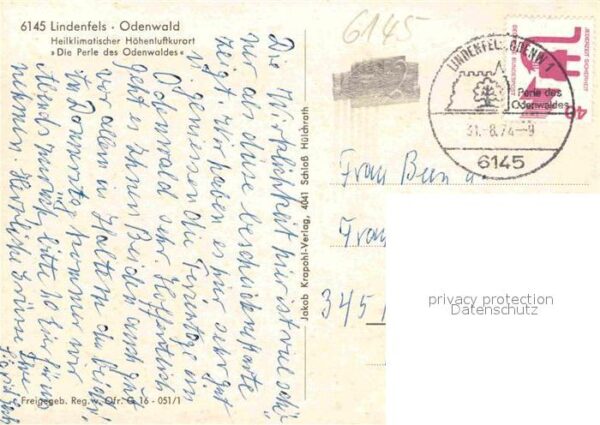 6145 Lindenfels · Odenwald
Heilklimatischer Höhenluftkurort
»Die Perle des Odenwaldes«
6145
Die Wirklichkeit hier ist viel schö-
ner als diese bescheidene Karte
zeigt. Wir haben es hier sehr gut
u. geniessen die Ferientage im
Odenwald sehr. Hoffentlich
geht es Ihnen Beiden auch gut
vor allem in
Am Donnerstag kommen wir
Abends zurück, bitte
nehmen. Herzliche Grüsse Ihre
Freigegeb. Reg. v. Ofr. G 16 - 051/1
Jakob Krapohl-Verlag, 4041 Schloß Hülchrath
LINDENFELS, ODENW 1
Perle des
Odenwaldes
31.-8.74-9
6145
JEDERZEIT SICHERHEIT
DEUTSCHE BUNDESPOST
40
Frau
Frau
345
privacy protection
Datenschutz